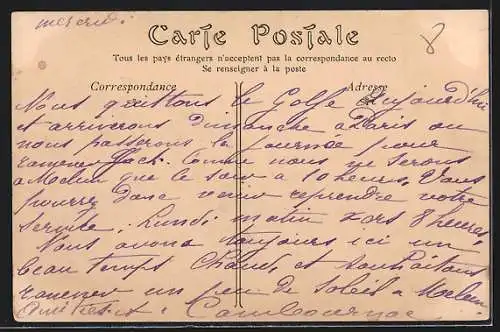 mercredi.
8
Carte Postale
Tous les pays étrangers n'acceptent pas la correspondance au recto
Se renseigner à la poste
Correspondance
Adresse
Nous quittons le Golfe aujourd'hui
et arriverons Dimanche à Paris ou
nous passerons la journée pour
ramener Jack. Comme nous ne serons
a Melun que le soir a 10 heures. Vous
pourrez donc venir reprendre votre
service, Lundi matin vers 8 heures,
Nous avons toujours ici un
beau temps chaud, et souhaitons
ramener un peu de soleil a Melun
Amitiés